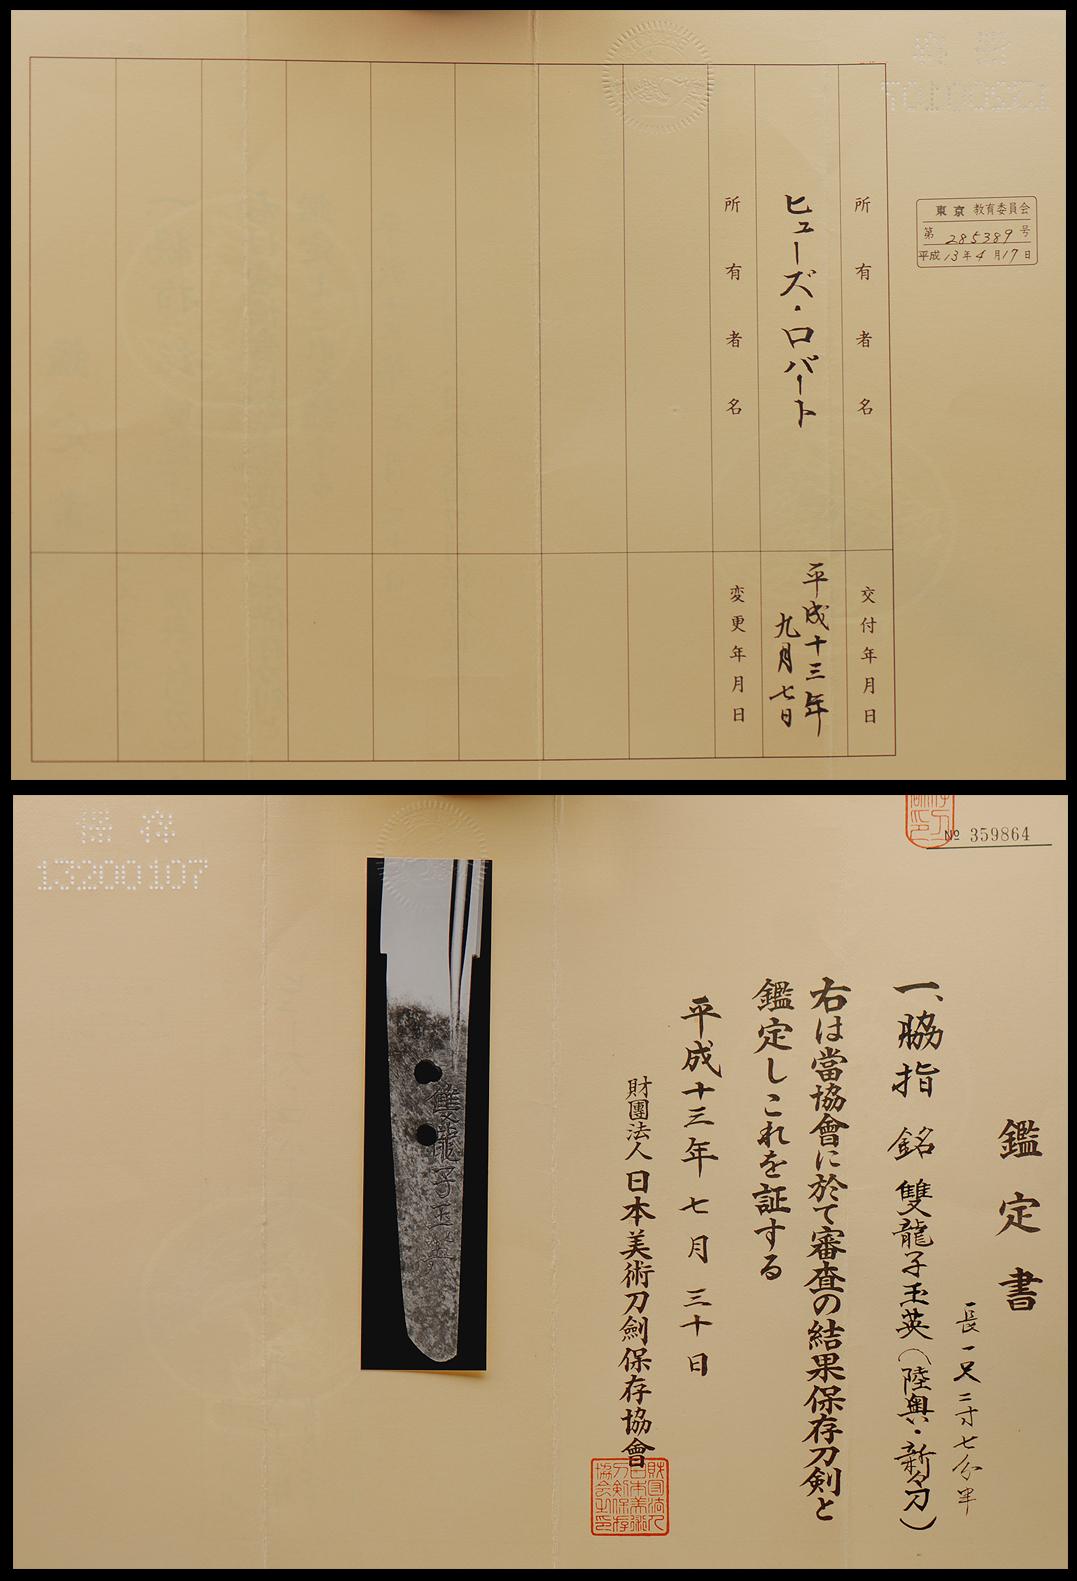 保存
東京教育委員会
第285389号
平成13年4月17日
所有者名
交付年月日
ヒューズ・ロバート
平成十三年
九月七日
所有者名
変更年月日
保存
13200107
№ 359864
鑑定書
長一尺二寸七分半
一、脇指 銘 雙龍子玉英(陸奥・新々刀)
右は當協會に於て審査の結果保存刀剣と
鑑定しこれを証する
平成十三年七月三十日
財團法人日本美術刀劍保存協會
財団法人
日本美術
刀剣保存
協会之印
雙龍子玉英